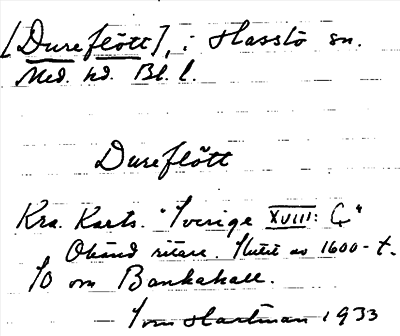 [Dureflött], i Hasslö sn.
Med. hd. Bl. l.
Dureflött
Kra. Karts. "Sverige XVIII: Ç"
Okänd ritare. Slutet av 1600-t.
SO om Bankahall.
Tom Hartman 1933